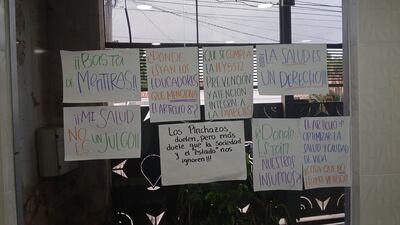 ¡¡BASTA
DE
MENTIRAS!!
¿DONDE
ESTAN LOS
EDUCADORES
QUE MENCIONA
EL ARTICULO 8?
QUE SE CUMPLA
LA LEY
PREVENCIÓN
Y ATENCIÓN
INTEGRAL A
LA DIABETES
¡¡LA SALUD ES
UN DERECHO!!
¡¡MI SALUD
NO ES
UN JUEGO!!
Los Pinchazos
duelen, pero más
duele que la Sociedad
y el "Estado" nos
ignoren!!!
¿Donde
Están
NUESTROS
INSUMOS?
EL ARTICULO 1
OPTIMIZAR LA
SALUD Y CALIDAD
DE VIDA
¡COSA QUE NO